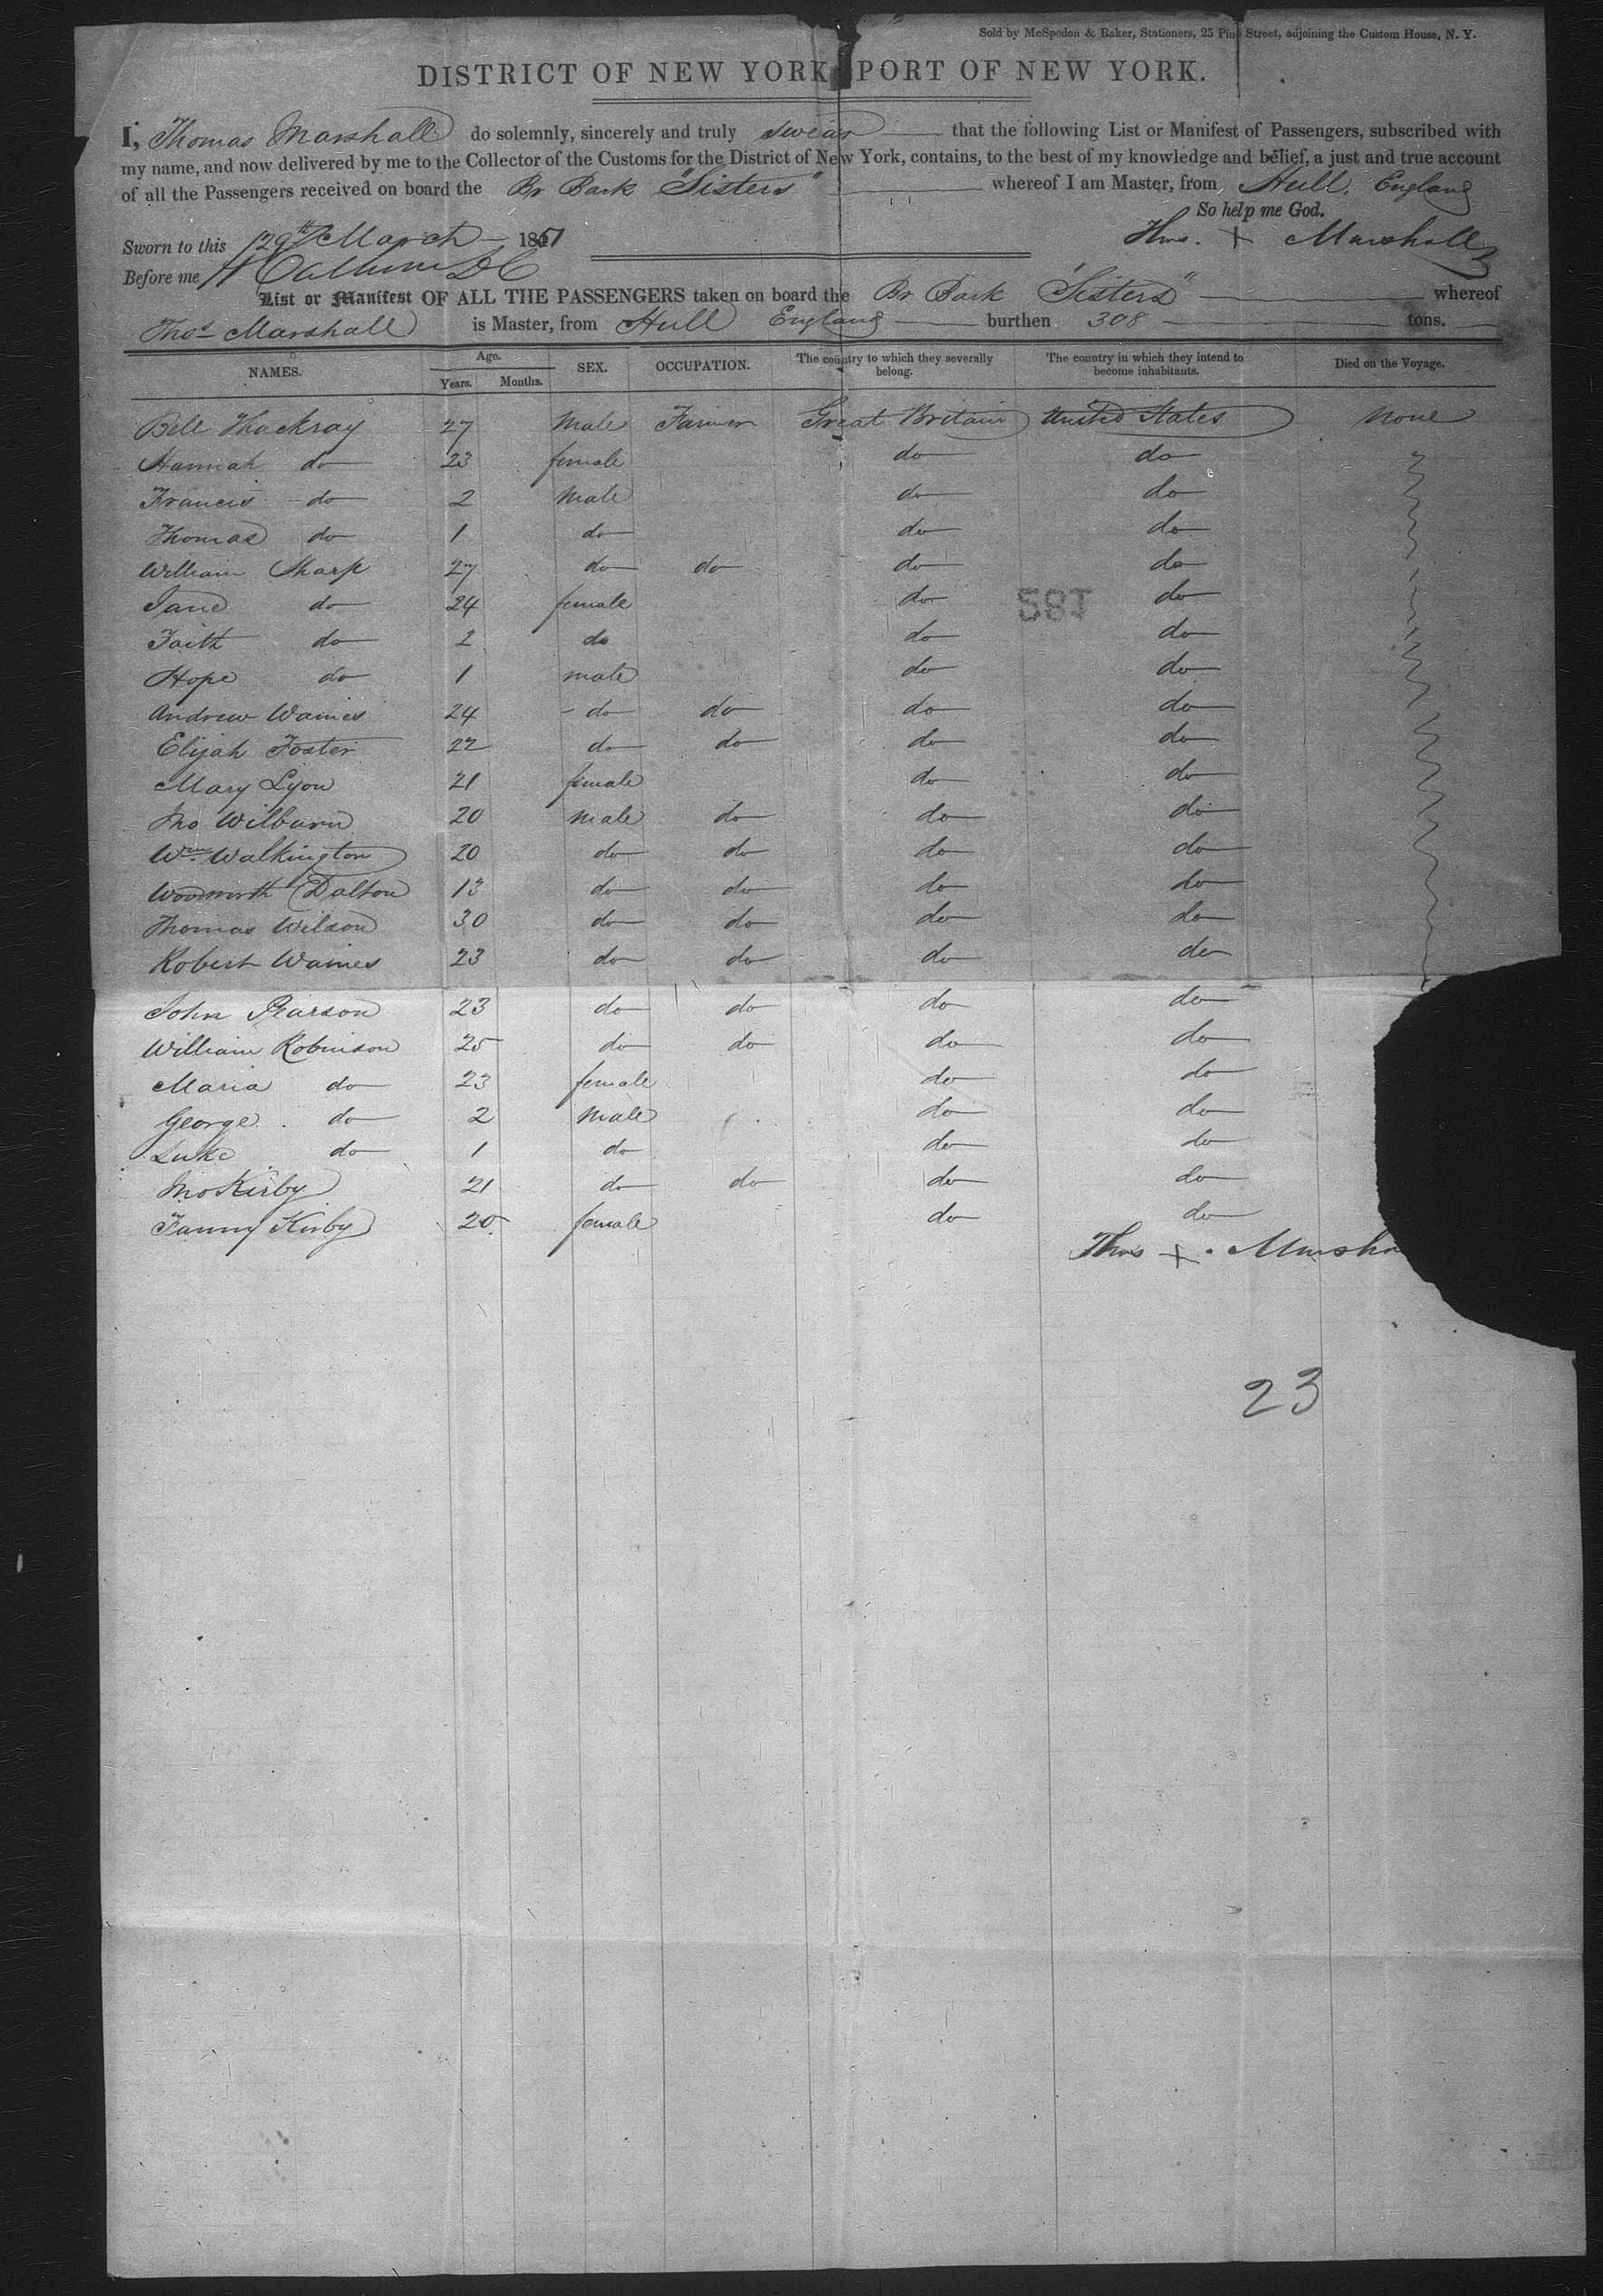 Sold by McSpedon & Baker, Stationers, 25 Pine Street, adjoining the Custom House, N. Y.
DISTRICT OF NEW YORK PORT OF NEW YORK.
I, Thomas Marshall do solemnly, sincerely and truly swear that the following List or Manifest of Passengers, subscribed with
my name, and now delivered by me to the Collector of the Customs for the District of New York, contains, to the best of my knowledge and belief, a just and true account
of all the Passengers received on board the Br Bark "Sisters" whereof I am Master, from Hull, England
So help me God.
Sworn to this 29th March 1851 Thos. + Marshall
Before me
List or Manifest OF ALL THE PASSENGERS taken on board the Br Bark "Sisters" whereof
Thos Marshall is Master, from Hull England burthen 308 tons.
NAMES. Age. Years. Months. SEX. OCCUPATION. The country to which they severally belong. The country in which they intend to become inhabitants. Died on the Voyage.
Bell Thackray 27 Male Farmer Great Britain United States None
Hannah do 23 female do do
Francis do 2 Male do do
Thomas do 1 do do do
William Sharp 27 do do do do
Jane do 24 female do do
182
Faith do 2 do do do
Hope do 1 male do do
Andrew Waines 24 do do do do
Elijah Foster 22 do do do do
Mary Lyon 21 female do do
Jno Wilburn 20 Male do do do
Wm Walkington 20 do do do do
Woodworth Dalton 13 do do do do
Thomas Wilson 30 do do do do
Robert Waines 23 do do do do
John Pearson 23 do do do do
William Robinson 25 do do do do
Maria do 23 female do do
George do 2 Male do do
Luke do 1 do do do
Jno Kirby 21 do do do do
Fanny Kirby 20 female do do
Thos + Marsha
23